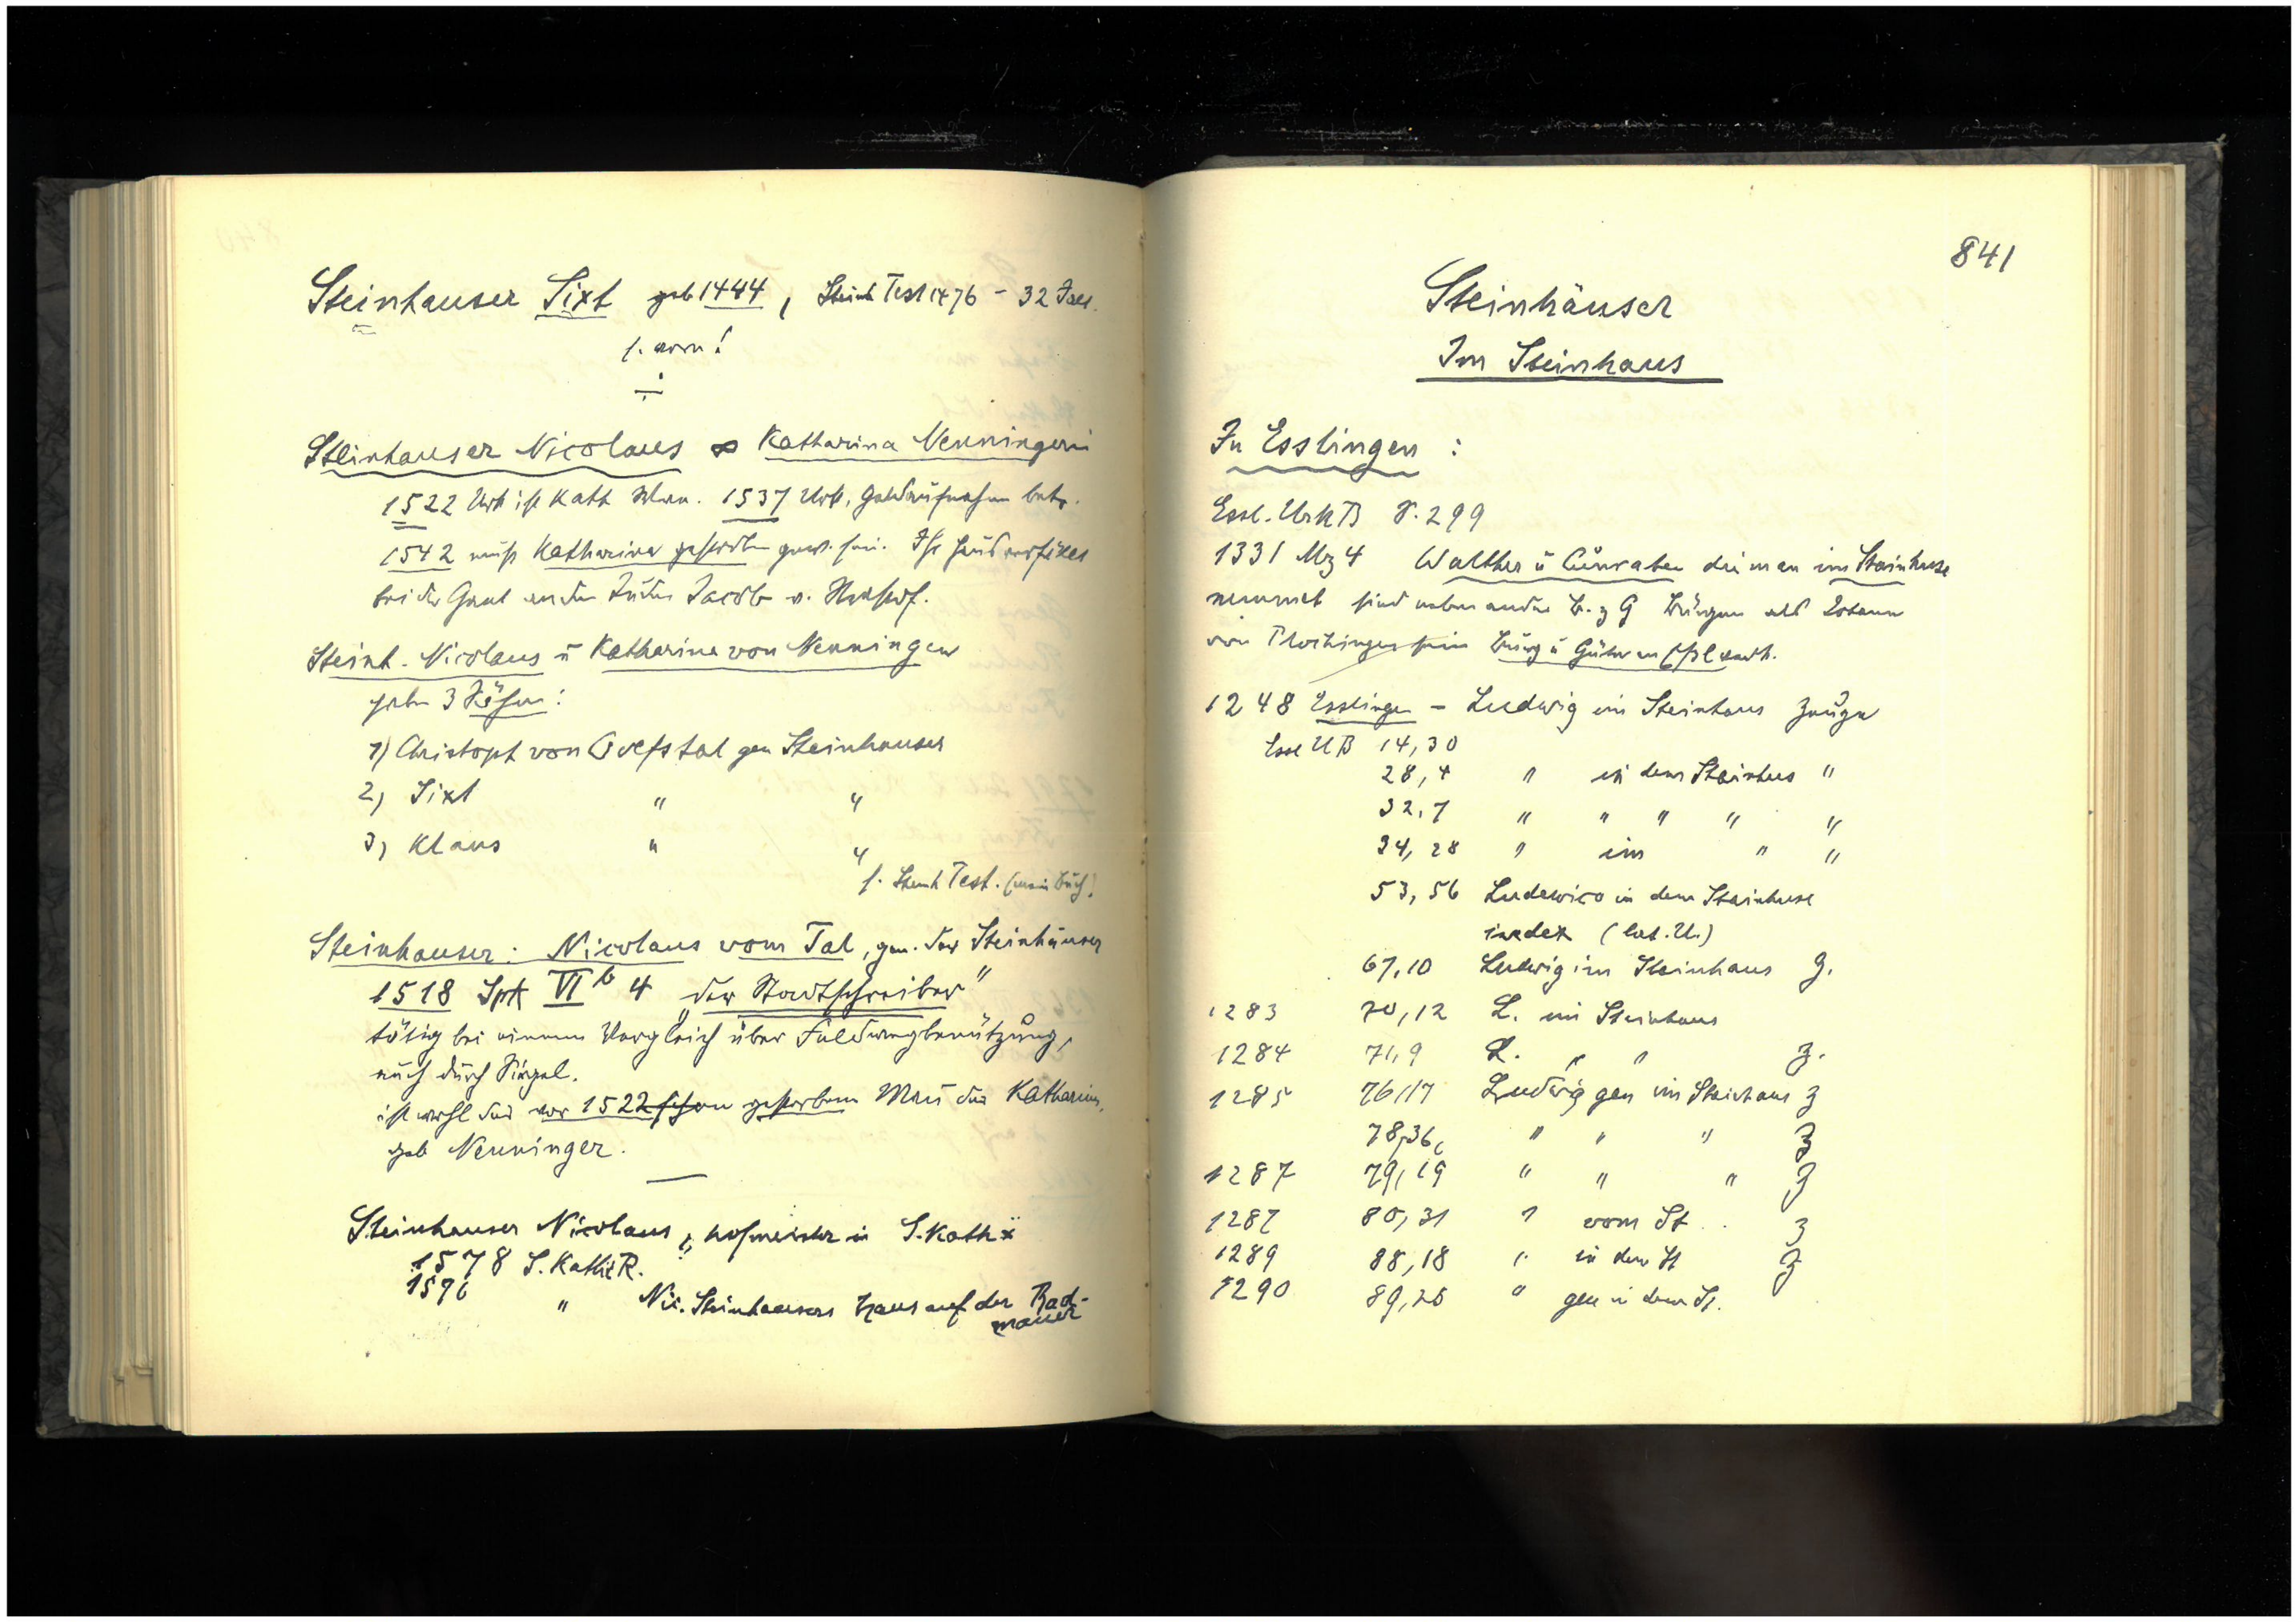 Steinhauser Sixt geb 1444, Steinh Test 1476 - 32 Jar.
s. vorn!
Steinhauser Nicolaus ∞ Katharina Nenningerin
1522 Urk ist Kath Wwe. 1537 Urk, Geldaufnahme betr.
1542 muss Katharina gestorben gew. sein. Ihr Haus
bei der Juden Jacob v.
Steinh. Nicolaus u Katharina von Nenningen
haben 3 Söhne:
1) Christoph von Tal gen Steinhauser
2) Sixt " "
3) Klaus " "
s. Steinh Test. (mein Buch)
Steinhauser: Nicolaus vom Tal, gen. der Steinhäuser
1518 Spk VI b 4 „der Stadtschreiber"
tätig bei einem Vergleich über Feldwegbenützung,
auch durch Siegel.
ist wohl der vor 1522 schon gestorbene Mann der Katharina,
geb Nenninger.
Steinhauser Nicolaus, Hofmeister in S. Kath
1578 S. Kath R.
1576 " Nic. Steinhausers Haus auf der Rad-
mauer
841
Steinhäuser
Im Steinhaus
In Esslingen:
Essl. UrkB S. 299
1331 Mz 4 Walther u Cůnrat die man im Stainhuse
nennet sind neben andre B. z G Bürgen als Johann
von Plochingen sein Burg u Güter verk.
1248 Esslingen - Ludwig im Steinhaus Zeuge
Essl UB 14,30
28,4 " in dem Stainhus "
32,7 " " " " "
34,28 " im " "
53,56 Ludewico in dem Stainhuse
iudex (lat. U.)
67,10 Ludwig im Steinhaus Z.
1283 70,12 L. im Steinhaus
1284 71,9 L. " " Z.
1285 76,17 Ludwig gen im Steinhaus Z
78,36, " " " Z
1287 79,19 " " " Z
1287 80,31 " vom St.. Z
1289 88,18 " in dem St Z
1290 89,25 " gen in dem St.